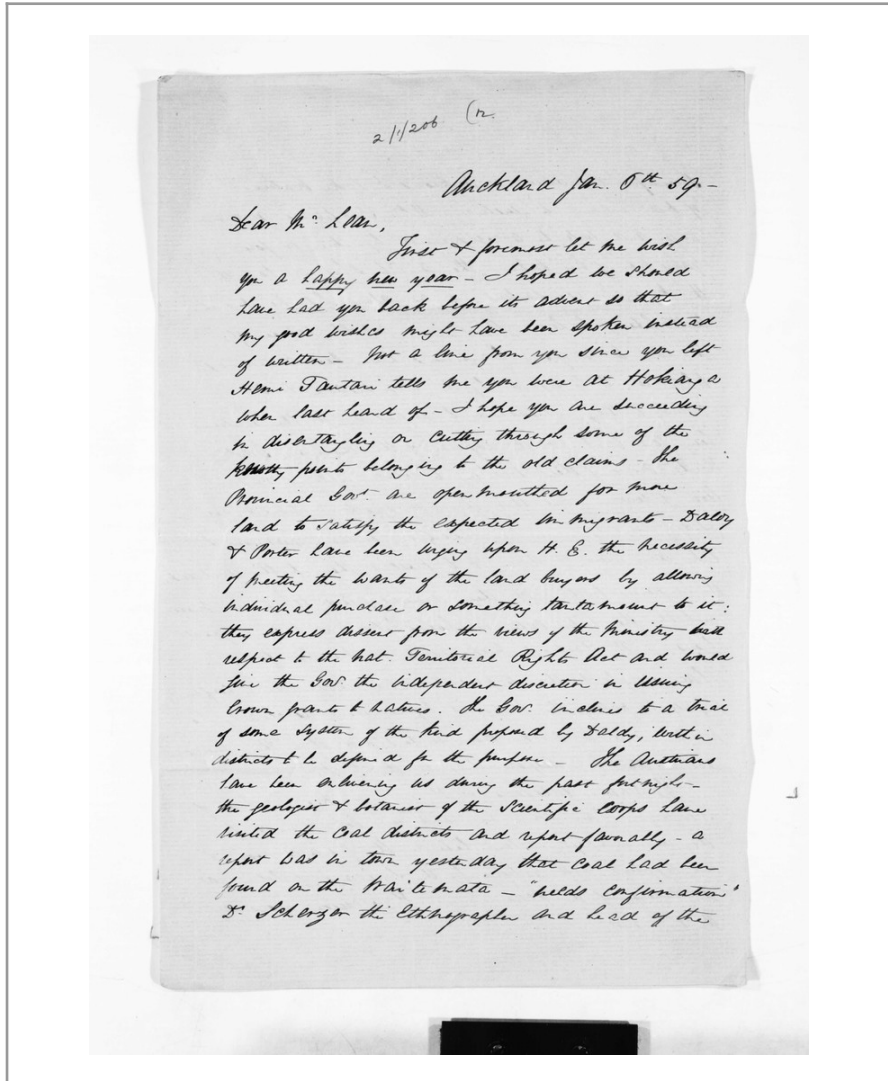 2/1/206 (12.
Auckland Jan. 6th 59 -
Dear Mc Lean,
First & foremost let me wish
you a happy new year - I hoped we should
have had you back before its advent so that
my good wishes might have been spoken instead
of written - Not a line from you since you left
Hemi Tautari tells me you were at Hokianga
when last heard of - I hope you are succeeding
in disentangling or cutting through some of the
knotty points belonging to the old claims - The
Provincial Govt. are open mouthed for more
land to satisfy the expected immigrants - Daldy
& Porter have been urging upon H. E. the necessity
of meeting the wants of the land buyers by allowing
individual purchase or something tantamount to it:
they express dissent from the views of the Ministry with
respect to the Nat. Territorial Rights Act and would
give the Govr. the independent discretion in issuing
Crown grants to natives. The Govr. inclines to a trial
of some system of the kind proposed by Daldy, within
districts to be defined for the purpose - The Austrians
have been enlivening us during the past fortnight -
the geologist & botanist of the Scientific Corps have
visited the coal districts and report favorably - a
report was in town yesterday that coal had been
found on the Waitemata - "needs confirmation"
Dr. Scherzer the Ethnographer and head of the